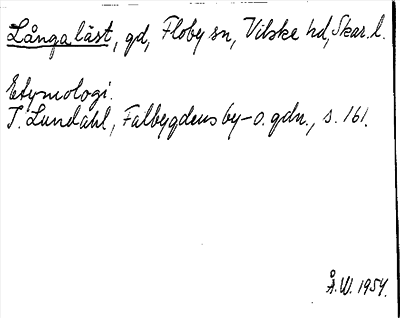 Långaläst, gd, Floby sn, Vilske hd, Skar. l.
Etymologi.
I. Lundahl, Falbygdens by- o. gdn., s. 161.
Å.W. 1954.